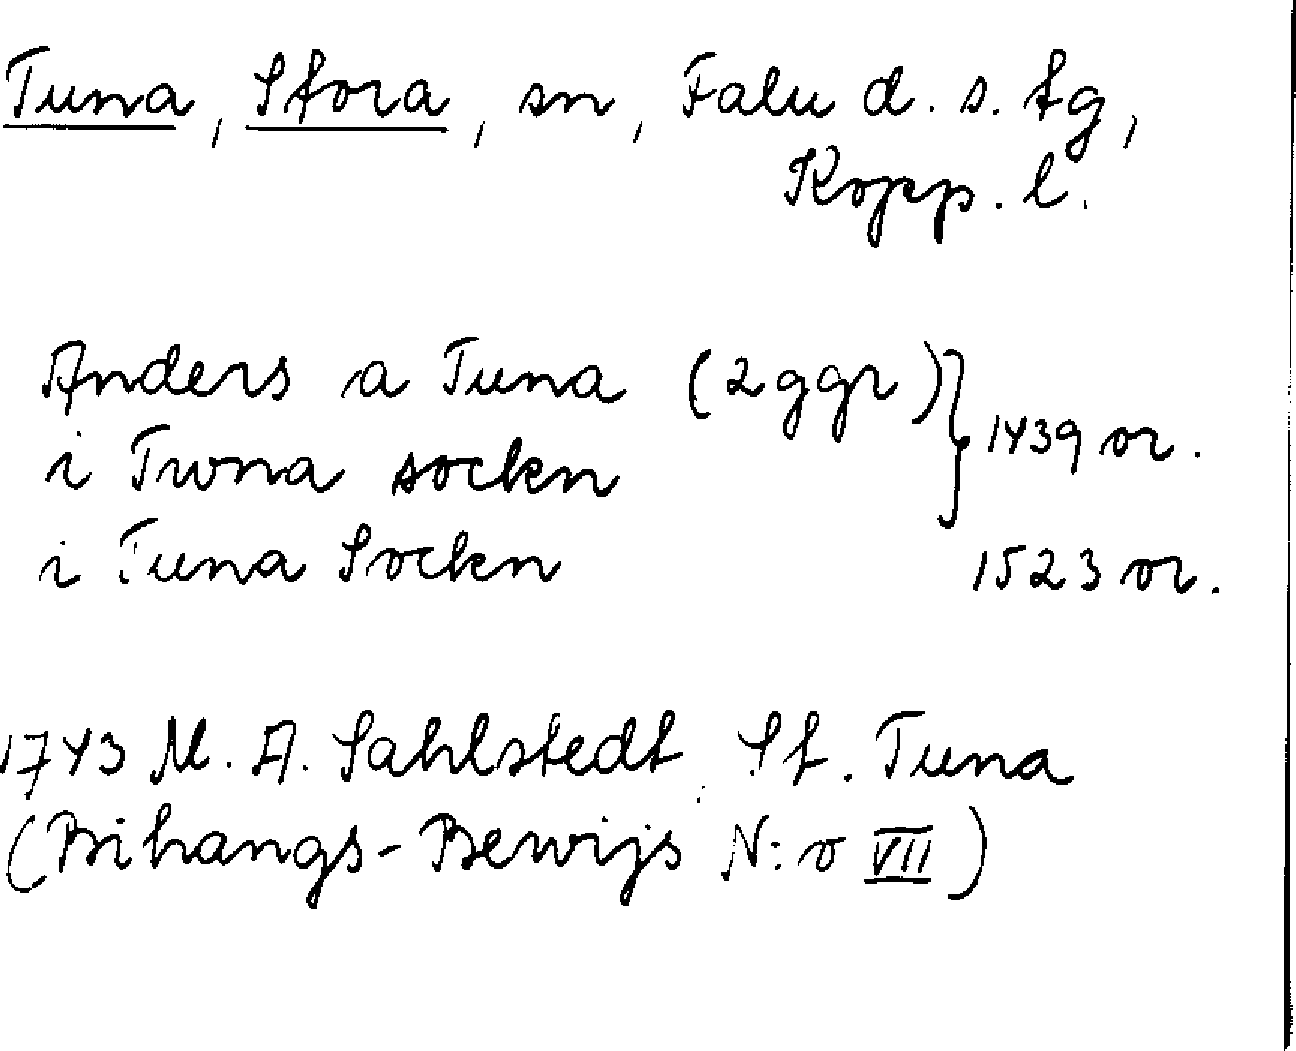 Tuna, Stora, sn, Falu d. s. tg,
Kopp. l.
Anders a Tuna (2 ggr)
i Twna sockn } 1439 or.
i Tuna Sockn 1523 or.
1743 M. A. Sahlstedt, St. Tuna
(Bihangs-Bewijs N:o VII)